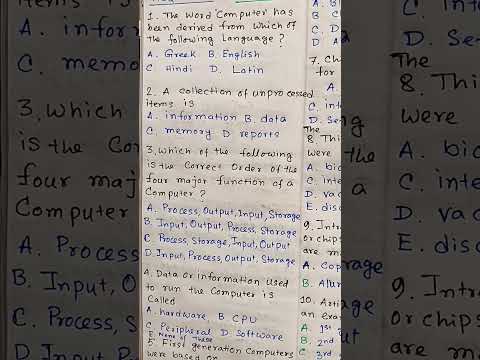 A. infor
C. memo
3, Which
is the Cor
four maj
Computer
A. Process
B. Input, O
C. Process, S
1. The word 'Computer' has
been derived from which of
the following language ?
A. Greek B. English
C Hindi D. Latin
2. A collection of unprocessed
items is
A. information B. data
C. memory D reports
3, Which of the following
is the Correct Order of the
four major function of a
Computer ?
A. Process, Output, Input, Storage
B. Input, Output, Process, Storage
C. Process, Storage, Input, Output
D. Input, Process, Output, Storage
4. Data or Information used
to run the Computer is
Called
A. hardware B CPU
C. Peripheral D. Software
None of These
5. First generation Computers
were based on
7. Ch
for
A.
C. int
D. Se
The
8. Thi
were
A. bio
C. inte
D. va
E. disc
9. Intr
or chips
are m
A. Cop
B. Alu
10. Arti
an Exa
A. 1st
B. 2nd
C. 3rd
D. Se
The
8. Thi
were
A. bio
C. inte
D. vac
E. disc
9. Intr
or chips
are m